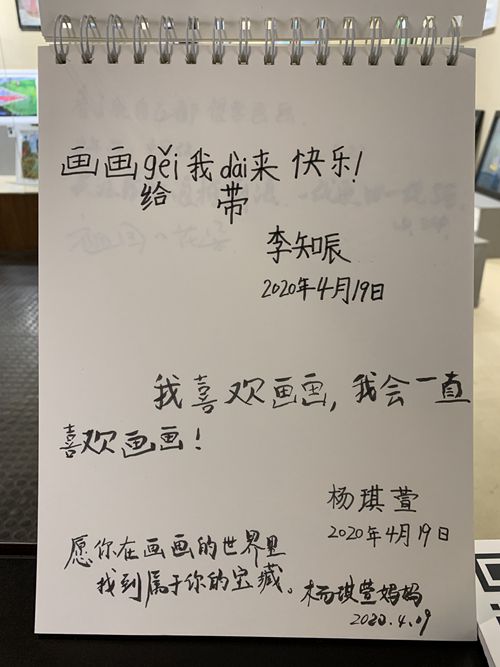 画画gěi我dài来 快乐!
给 带
李知唳
2020年4月19日
我喜欢画画,我会一直
喜欢画画!
杨琪萱
2020年4月19日
愿你在画画的世界里
找到属于你的宝藏。杨琪萱妈妈
2020.4.19